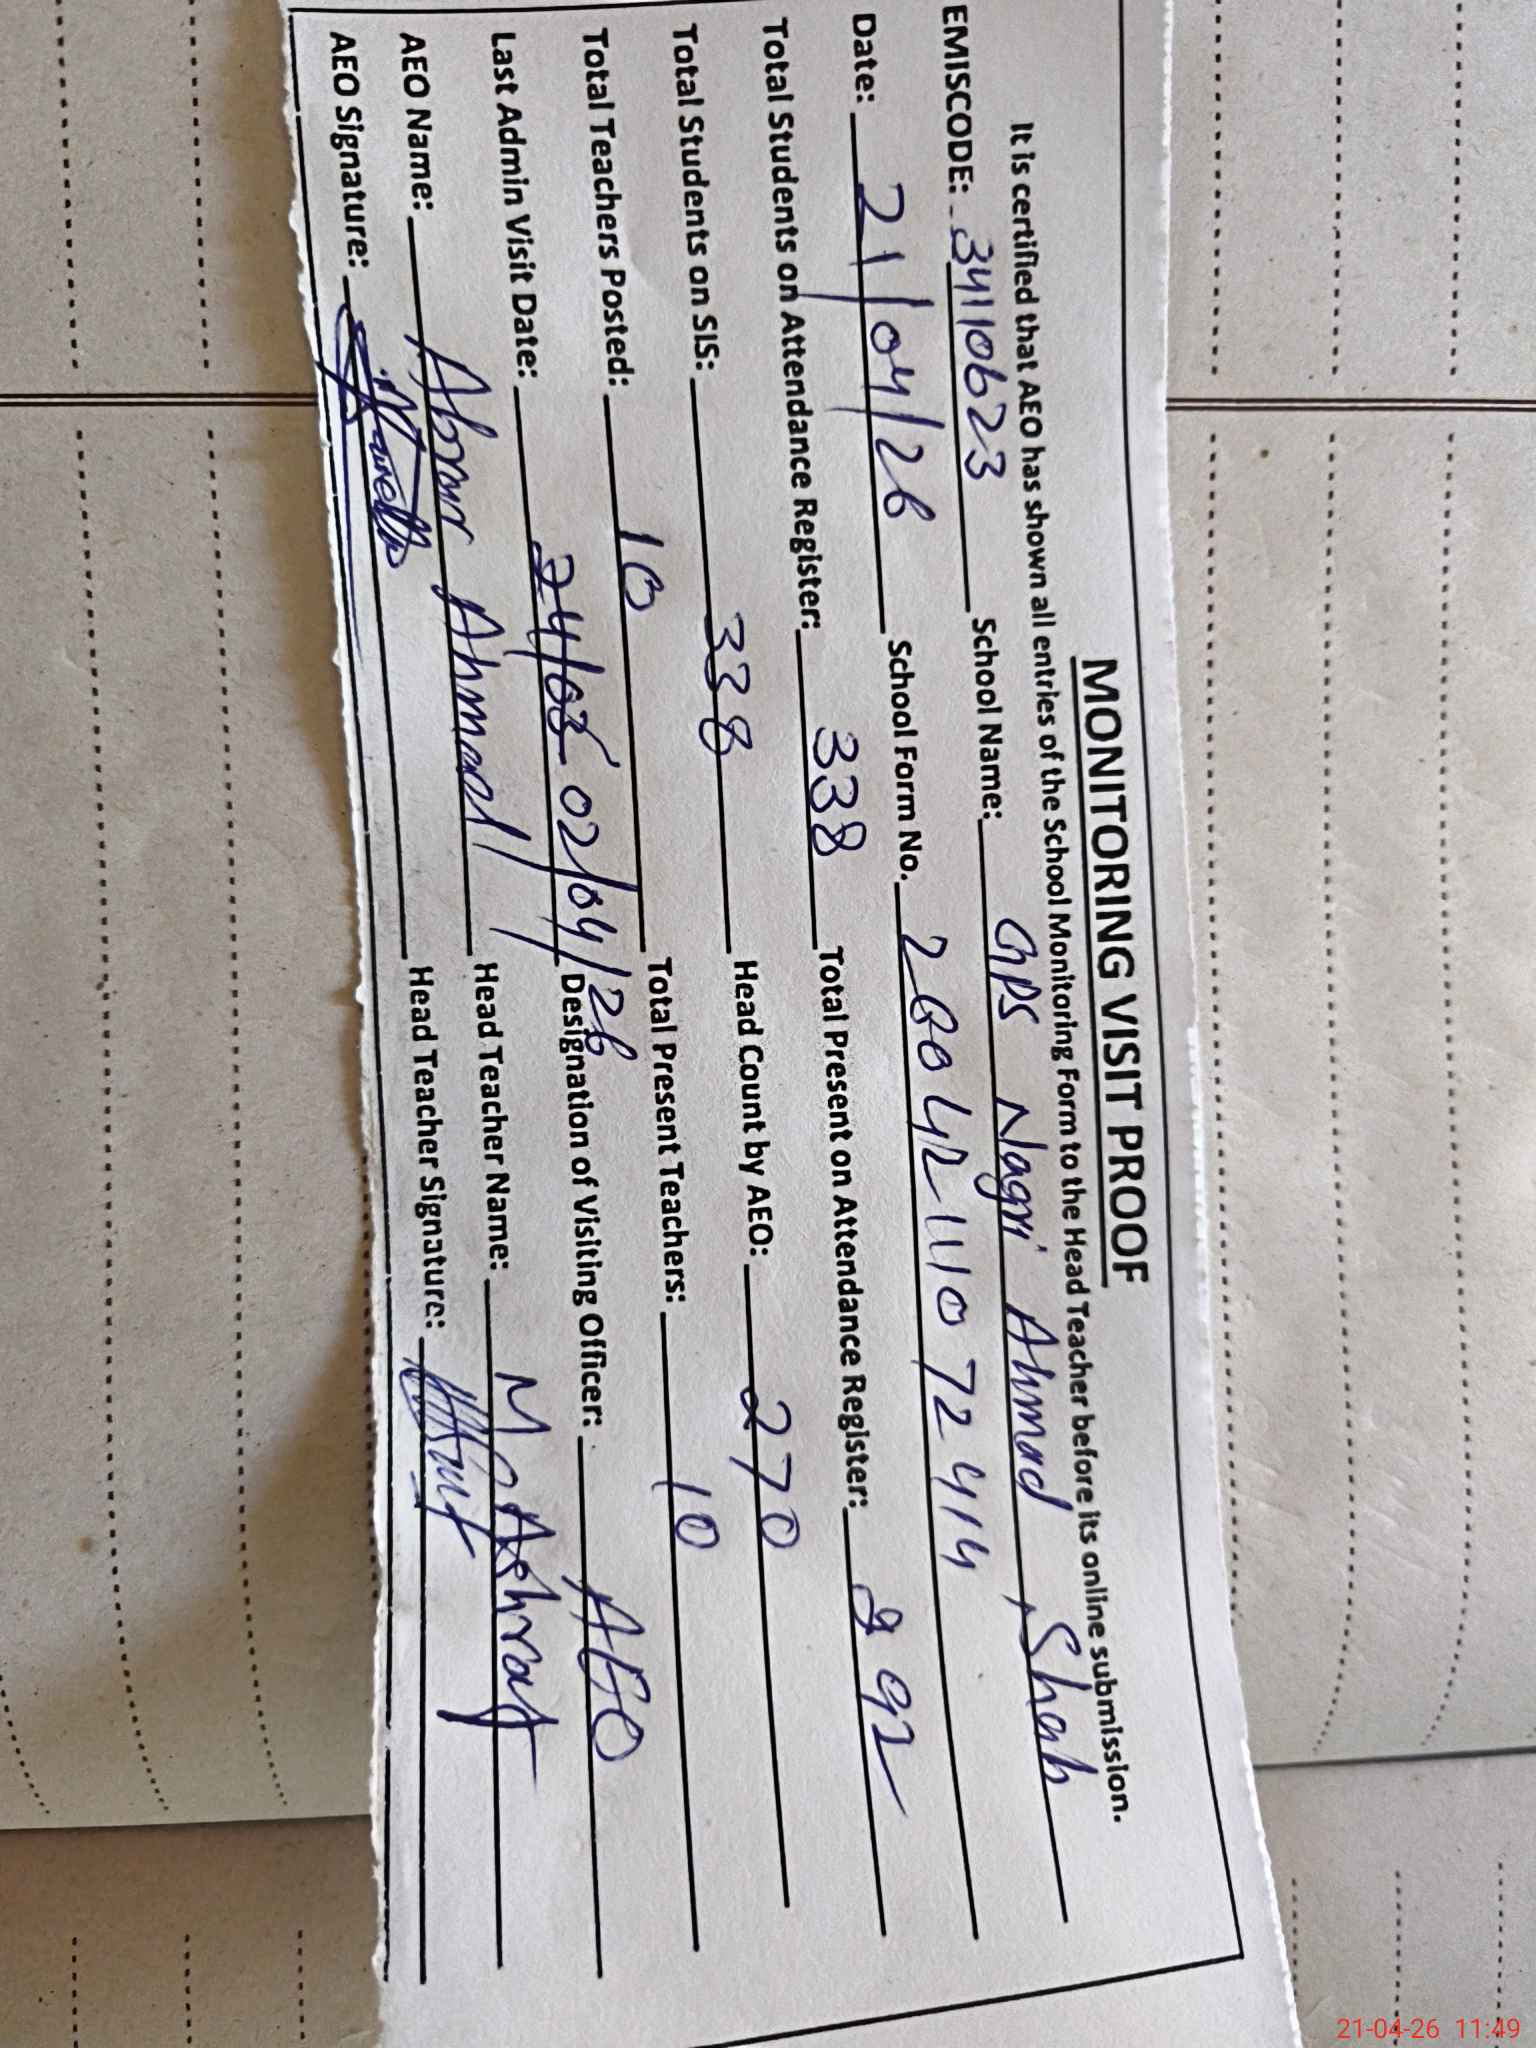 MONITORING VISIT PROOF
It is certified that AEO has shown all entries of the School Monitoring Form to the Head Teacher before its online submission.
EMISCODE: 34110623 School Name: GPS Nagri Ahmad Shah
Date: 21/04/26 School Form No. 26042111072414
Total Students on Attendance Register: 338 Total Present on Attendance Register: 292
Total Students on SIS: 338 Head Count by AEO: 270
Total Teachers Posted: 10 Total Present Teachers: 10
Last Admin Visit Date: 02/04/26 Designation of Visiting Officer: AEO
AEO Name: Ahmad Head Teacher Name: M. Ashraf
AEO Signature: Head Teacher Signature:
21-04-26 11:49